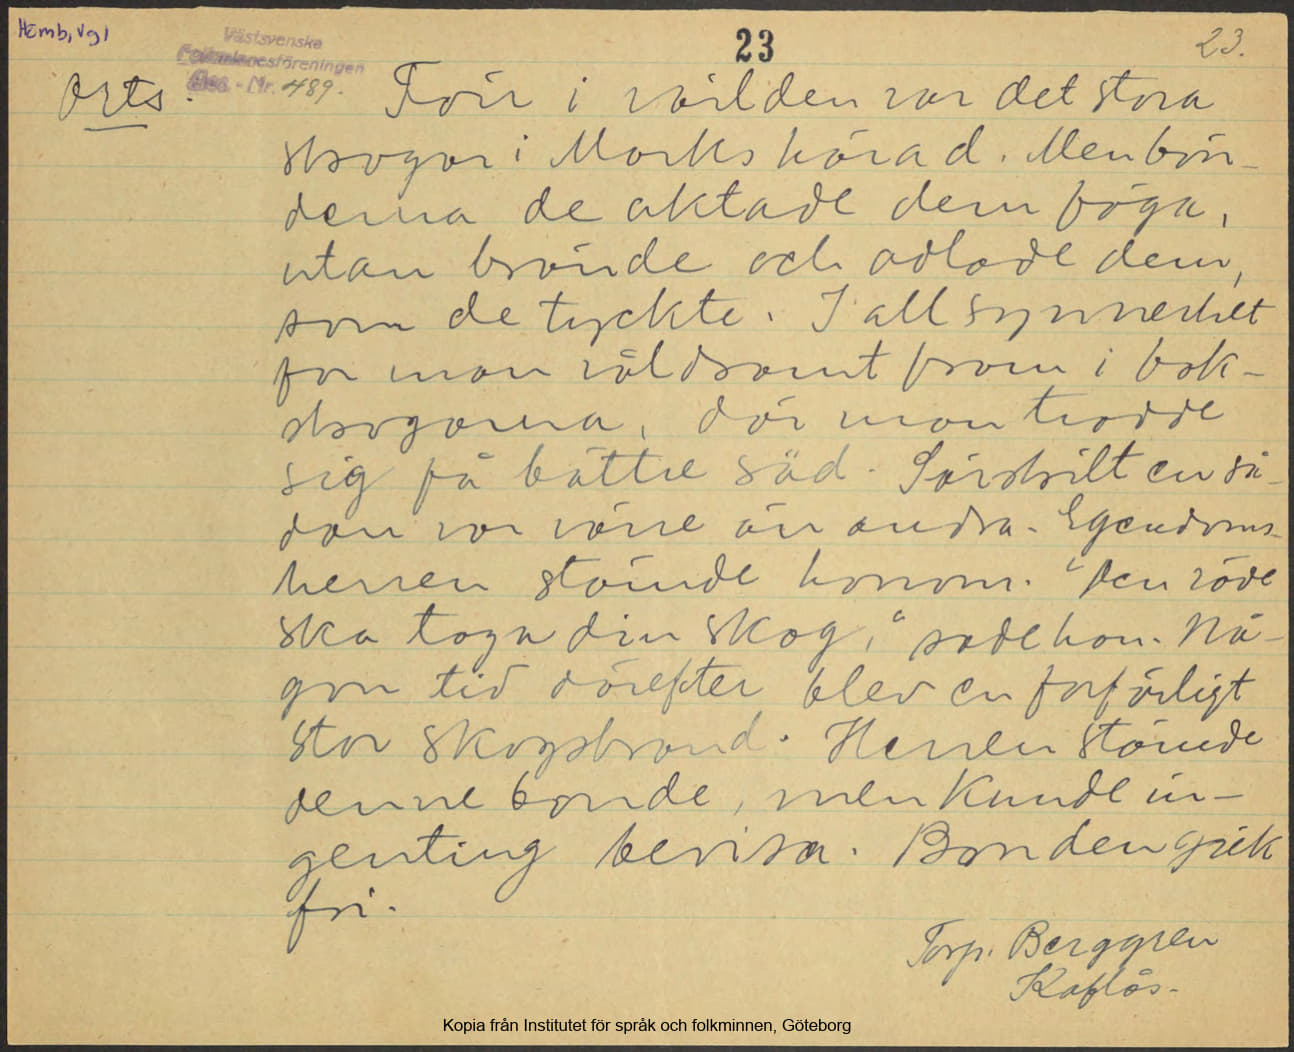 Hemb, Vgl
Västsvenska
Folkminnesföreningen
Acc. - Nr. 489.
23
23.
Orts.
Förr i världen var det stora
skogar i Marks härad. Men bön-
derna de aktade dem föga,
utan brände och odlade dem,
som de tyckte. I all synnerhet
for man våldsamt fram i bok-
skogarna, där man trodde
sig få bättre säd. Särskilt en så-
dan var värre än andra. Egendoms-
herren stämde honom. "Den röde
ska taga din skog," sade han. Nå-
gon tid därefter blev en förfärligt
stor skogsbrand. Herren stämde
denne bonde, men kunde in-
genting bevisa. Bonden gick
fri.
Torp. Berggren
Kaflås.
Kopia från Institutet för språk och folkminnen, Göteborg